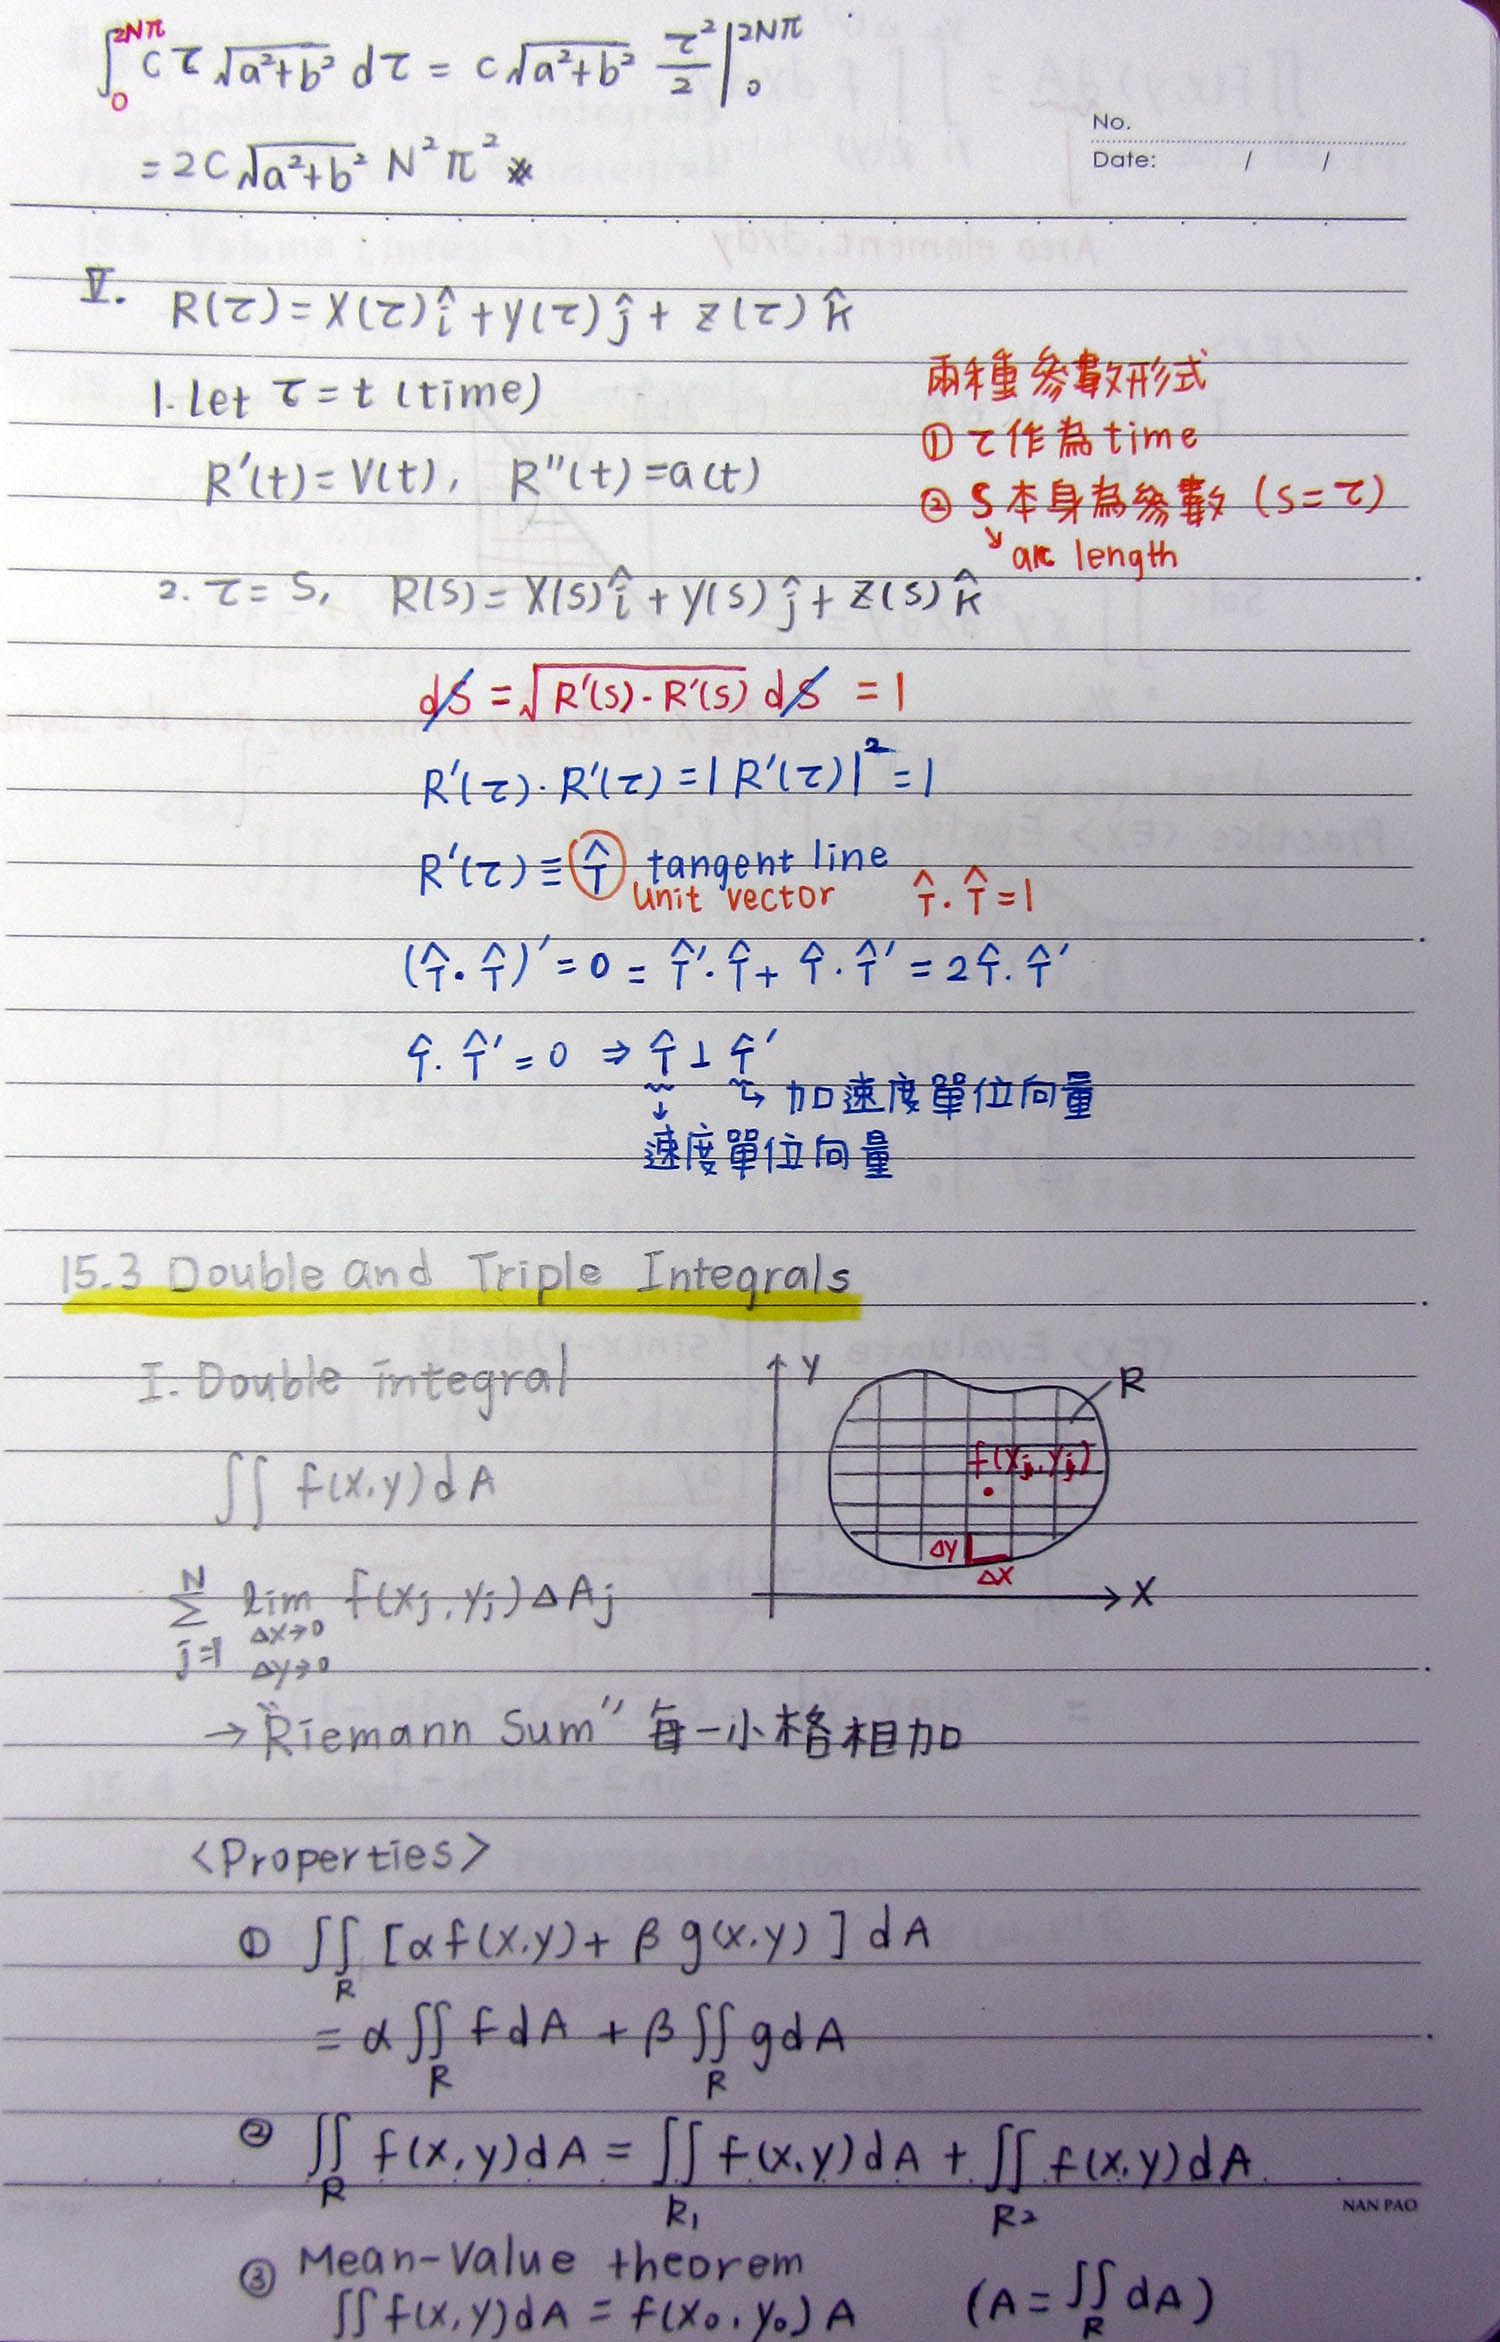 ∫₀^{2Nπ} cτ√(a²+b²) dτ = c√(a²+b²) τ²/2 |₀^{2Nπ}
= 2c√(a²+b²) N²π² ※
No.
Date: / /
V. R(τ) = X(τ)î + Y(τ)ĵ + Z(τ)k̂
1. Let τ = t (time)
R'(t) = V(t), R''(t) = a(t)
兩種參數形式
① τ作為time
② S本身為參數 (S=τ)
↘ arc length
2. τ = S, R(S) = X(S)î + Y(S)ĵ + Z(S)k̂
dS = √(R'(S)·R'(S)) dS = 1
R'(τ)·R'(τ) = |R'(τ)|² = 1
R'(τ) ≡ T̂ tangent line
unit vector T̂·T̂ = 1
(T̂·T̂)' = 0 = T̂'·T̂ + T̂·T̂' = 2T̂·T̂'
T̂·T̂' = 0 ⇒ T̂ ⊥ T̂'
↳ 加速度單位向量
↓
速度單位向量
15.3 Double and Triple Integrals
I. Double integral
∬ f(x,y)dA
Σ_{j=1}^{N} lim_{Δx→0 Δy→0} f(xj, yj)ΔAj
→ "Riemann Sum" 每一小格相加
Y
R
f(xj, yj)
Δy
Δx
X
<Properties>
① ∬_R [αf(x,y) + βg(x,y)] dA
= α∬_R f dA + β∬_R g dA
② ∬_R f(x,y)dA = ∬_{R₁} f(x,y)dA + ∬_{R₂} f(x,y)dA
NAN PAO
③ Mean-Value theorem
∬ f(x,y)dA = f(x₀, y₀)A (A = ∬_R dA)